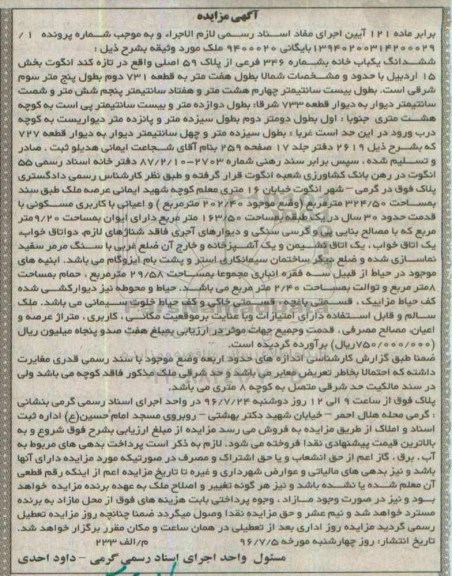 آگهی مزایده
برابر ماده 121 آیین اجرای مفاد اسناد رسمی لازم الاجراء و به موجب شماره پرونده 1 /
139402003142000029بایگانی 9400020 ملک مورد وثیقه بشرح ذیل :
ششدانگ یکباب خانه بشماره 346 فرعی از پلاک 59 اصلی واقع در تازه کند انگوت بخش
15 اردبیل با حدود و مشخصات شمالا بطول هفت متر به قطعه 731 دوم بطول پنج متر سوم
شرقی است. بطول بیست سانتیمتر چهارم هشت متر و هفتاد سانتیمتر پنجم شش متر و شصت
سانتیمتر دیوار به دیوار قطعه 733 شرقا: بطول دوازده متر و بیست سانتیمتر پی است به کوچه
هشت متری جنوبا : اول بطول دومتر دوم بطول سیزده متر و پانزده متر دیواریست به کوچه
درب ورود در این حد است غربا : بطول سیزده متر و چهل سانتیمتر دیوار به دیوار قطعه 727
که بشرح ذیل 2619 دفتر جلد 17 صفحه 259 بنام آقای شجاعت ایمانی هدیلو ثبت . صادر
و تسلیم شده ، سپس برابر سند رهنی شماره 2703-87/2/10 دفتر خانه اسناد رسمی 55
انگوت در رهن بانک کشاورزی شعبه انگوت قرار گرفته و طبق نظر کارشناس رسمی دادگستری
پلاک فوق در گرمی – شهر انگوت خیابان 16 متری معلم کوچه شهید ایمانی عرصه ملک طبق سند
بمساحت 324/50 مترمربع (وضع موجود 202/40 مترمربع ) و اعیانی با کاربری مسکونی با
قدمت حدود 30 سال در یک طبقه بمساحت 163/50 متر مربع دارای ایوان بمساحت 9/20متر
مربع که با مصالح بنایی پی و کرسی سنگی و دیوارهای آجری فاقد شناژهای لازم، دواتاق خواب،
یک اتاق خواب، یک اتاق نشیمن و یک آشپزخانه و خارج آن ضلع غربی با سنگ مرمر سفید
نماسازی شده و ضلع دیگر ساختمان سیمانکاری آستر و پشت بام ایزوگام می باشد. ابنیه های
موجود در حیاط از قبیل سه فقره انباری مجموعا بمساحت 29/58 مترمربع ، حمام بمساحت
8متر مربع و توالت بمساحت 2/40 متر مربع می باشد. حیاط و محوطه نیز دیوارکشی شده
کف حیاط مزاییک ، قسمتی باغچه، قسمتی خاکی و کف حیاط خلوت سیمانی می باشد. ملک
سالم و قابل استفاده دارای امتیازات وبا عنایت برموقعیت مکانی ، کاربری ، متراژ عرصه و
اعیان، مصالح مصرفی ، قدمت وجمیع جهات موثر در ارزیابی بمبلغ هفت صدو پنجاه میلیون ریال
(750/000/000ریال) برآورده گردیده است.
ضمنا طبق گزارش کارشناسی اندازه های حدود اربعه وضع موجود با سند رسمی قدری مغایرت
داشته که احتمالا بخاطر تعریض معابر می باشد و حد شرقی ملک مذکور فاقد کوچه می باشد ولی
در سند مالکیت حد شرقی متصل به کوچه 8 متری می باشد.
پلاک فوق از ساعت 9 الی 12 روز دوشنبه 96/7/24 در واحد اجرای اسناد رسمی گرمی بنشانی
: گرمی محله هلال احمر – خیابان شهید دکتر بهشتی – روبروی مسجد امام حسین(ع) اداره ثبت
اسناد و املاک از طریق مزایده به فروش می رسد مزایده از مبلغ ارزیابی بشرح فوق شروع و به
بالاترین قیمت پیشنهادی نقدا فروخته می شود. لازم به ذکر است پرداخت بدهی های مربوط به
آب ، برق ، گاز اعم از حق انشعاب و یا حق اشتراک و مصرف در صورتیکه مورد مزایده دارای آنها
باشد و نیز بدهی های مالیاتی و عوارض شهرداری و غیره تا تاریخ مزایده اعم از اینکه رقم قطعی
آن معلم شده یا نشده باشد و نیز هر گونه تغییر و اصلاح ملک به عهده برنده مزایده خواهد
بود و نیز در صورت وجود مازاد ، وجوه پرداختی بابت هزینه های فوق از محل مازاد به برنده
مسترد خواهد شد و نیم عشر و حق مزایده نقدا وصول میگردد ضمنا چنانچه روز مزایده تعطیل
رسمی گردید مزایده روز اداری بعد از تعطیلی در همان ساعت و مکان مقرر برگزار خواهد شد.
تاریخ انتشار: روز چهارشنبه مورخه 96/7/5 م/الف 233
مسئول واحد اجرای اسناد رسمی گرمی – داود احدی